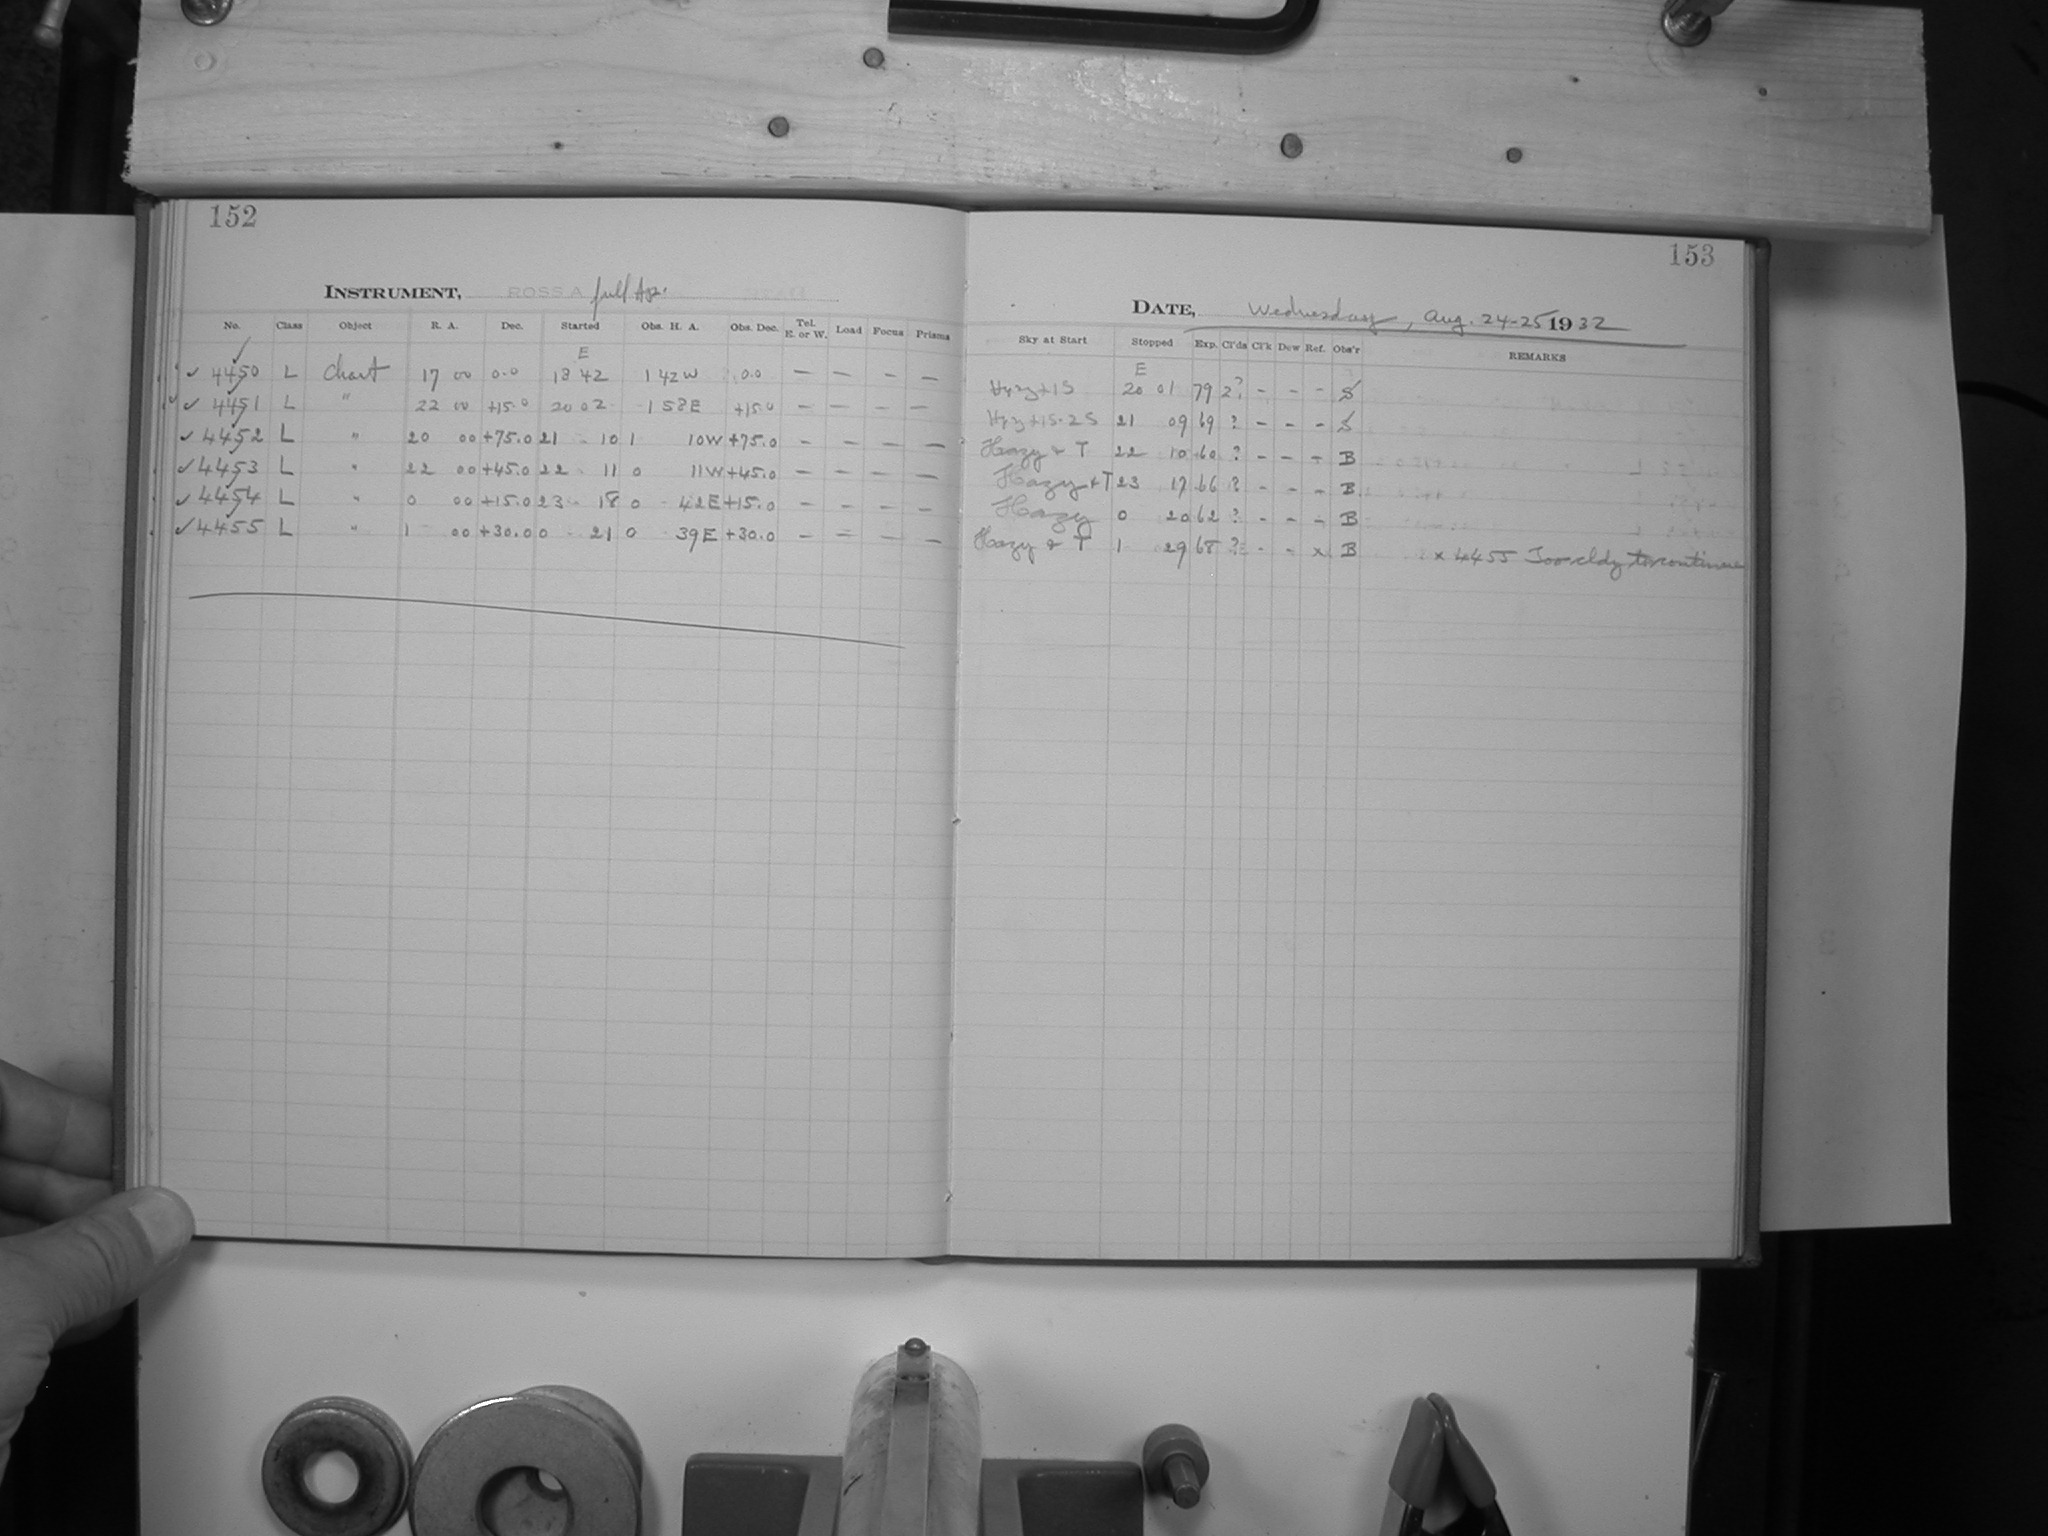 152
153
INSTRUMENT, ROSS A full Ap.
DATE, Wednesday, Aug. 24-25 1932
No. Class Object R. A. Dec. Started Obs. H. A. Obs. Dec. Tel. E. or W. Load Focus Prisms Sky at Start Stopped Exp. Cl'ds Cl'k Dew Ref. Obs'r REMARKS
E E
✓ 4450 L Chart 17 00 0.0 18 42 1 42 W 0.0 — — — — Hzy+1S 20 01 79 2? - - - S
✓ 4451 L " 22 00 +15.0 20 02 1 58 E +15.0 — — — — Hzy+1S.2S 21 09 69 ? - - - S
✓ 4452 L " 20 00 +75.0 21 10 1 10 W +75.0 — — — — Hazy & T 22 10 60 ? - - - B
✓ 4453 L " 22 00 +45.0 22 11 0 11 W +45.0 — — — — Hazy + T 23 17 66 ? - - - B
✓ 4454 L " 0 00 +15.0 23 18 0 42 E +15.0 — — — — Hazy 0 20 62 ? - - - B
✓ 4455 L " 1 00 +30.0 0 21 0 39 E +30.0 — — — — Hazy & T 1 29 68 ? - - x B x 4455 Too cldy to continue